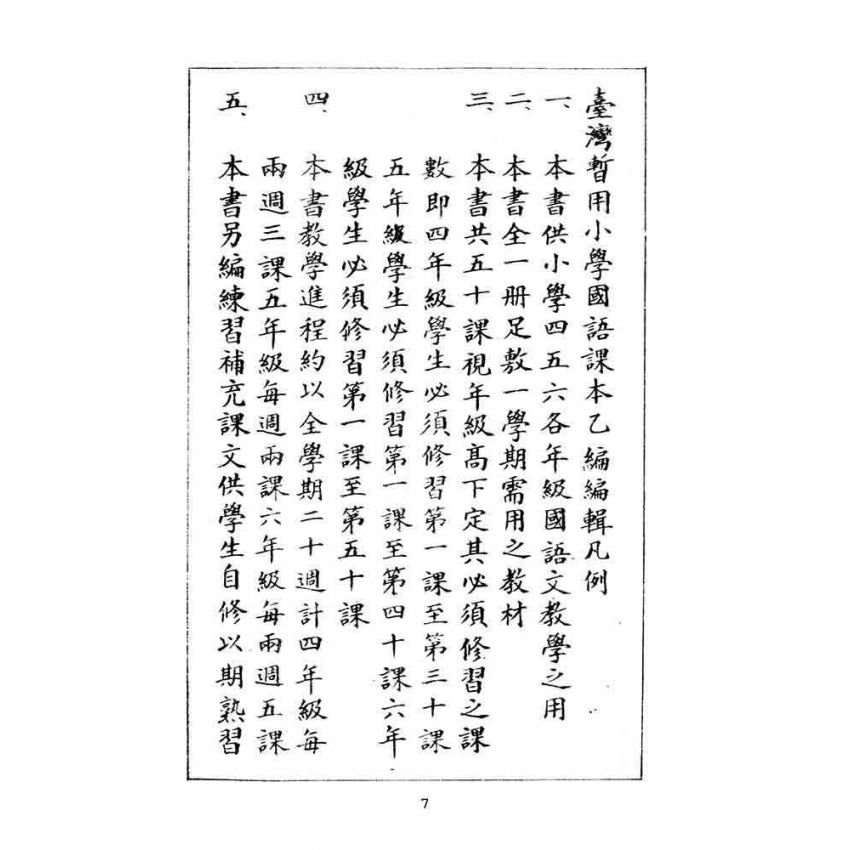 臺灣暫用小學國語課本乙編編輯凡例
一、本書供小學四五六各年級國語文教學之用
二、本書全一冊足敷一學期需用之教材
三、本書共五十課視年級高下定其必須修習之課
數即四年級學生必須修習第一課至第三十課
五年級學生必須修習第一課至第四十課六年
級學生必須修習第一課至第五十課
四、本書教學進程約以全學期二十週計四年級每
兩週三課五年級每週兩課六年級每兩週五課
五、本書另編練習補充課文供學生自修以期熟習
7